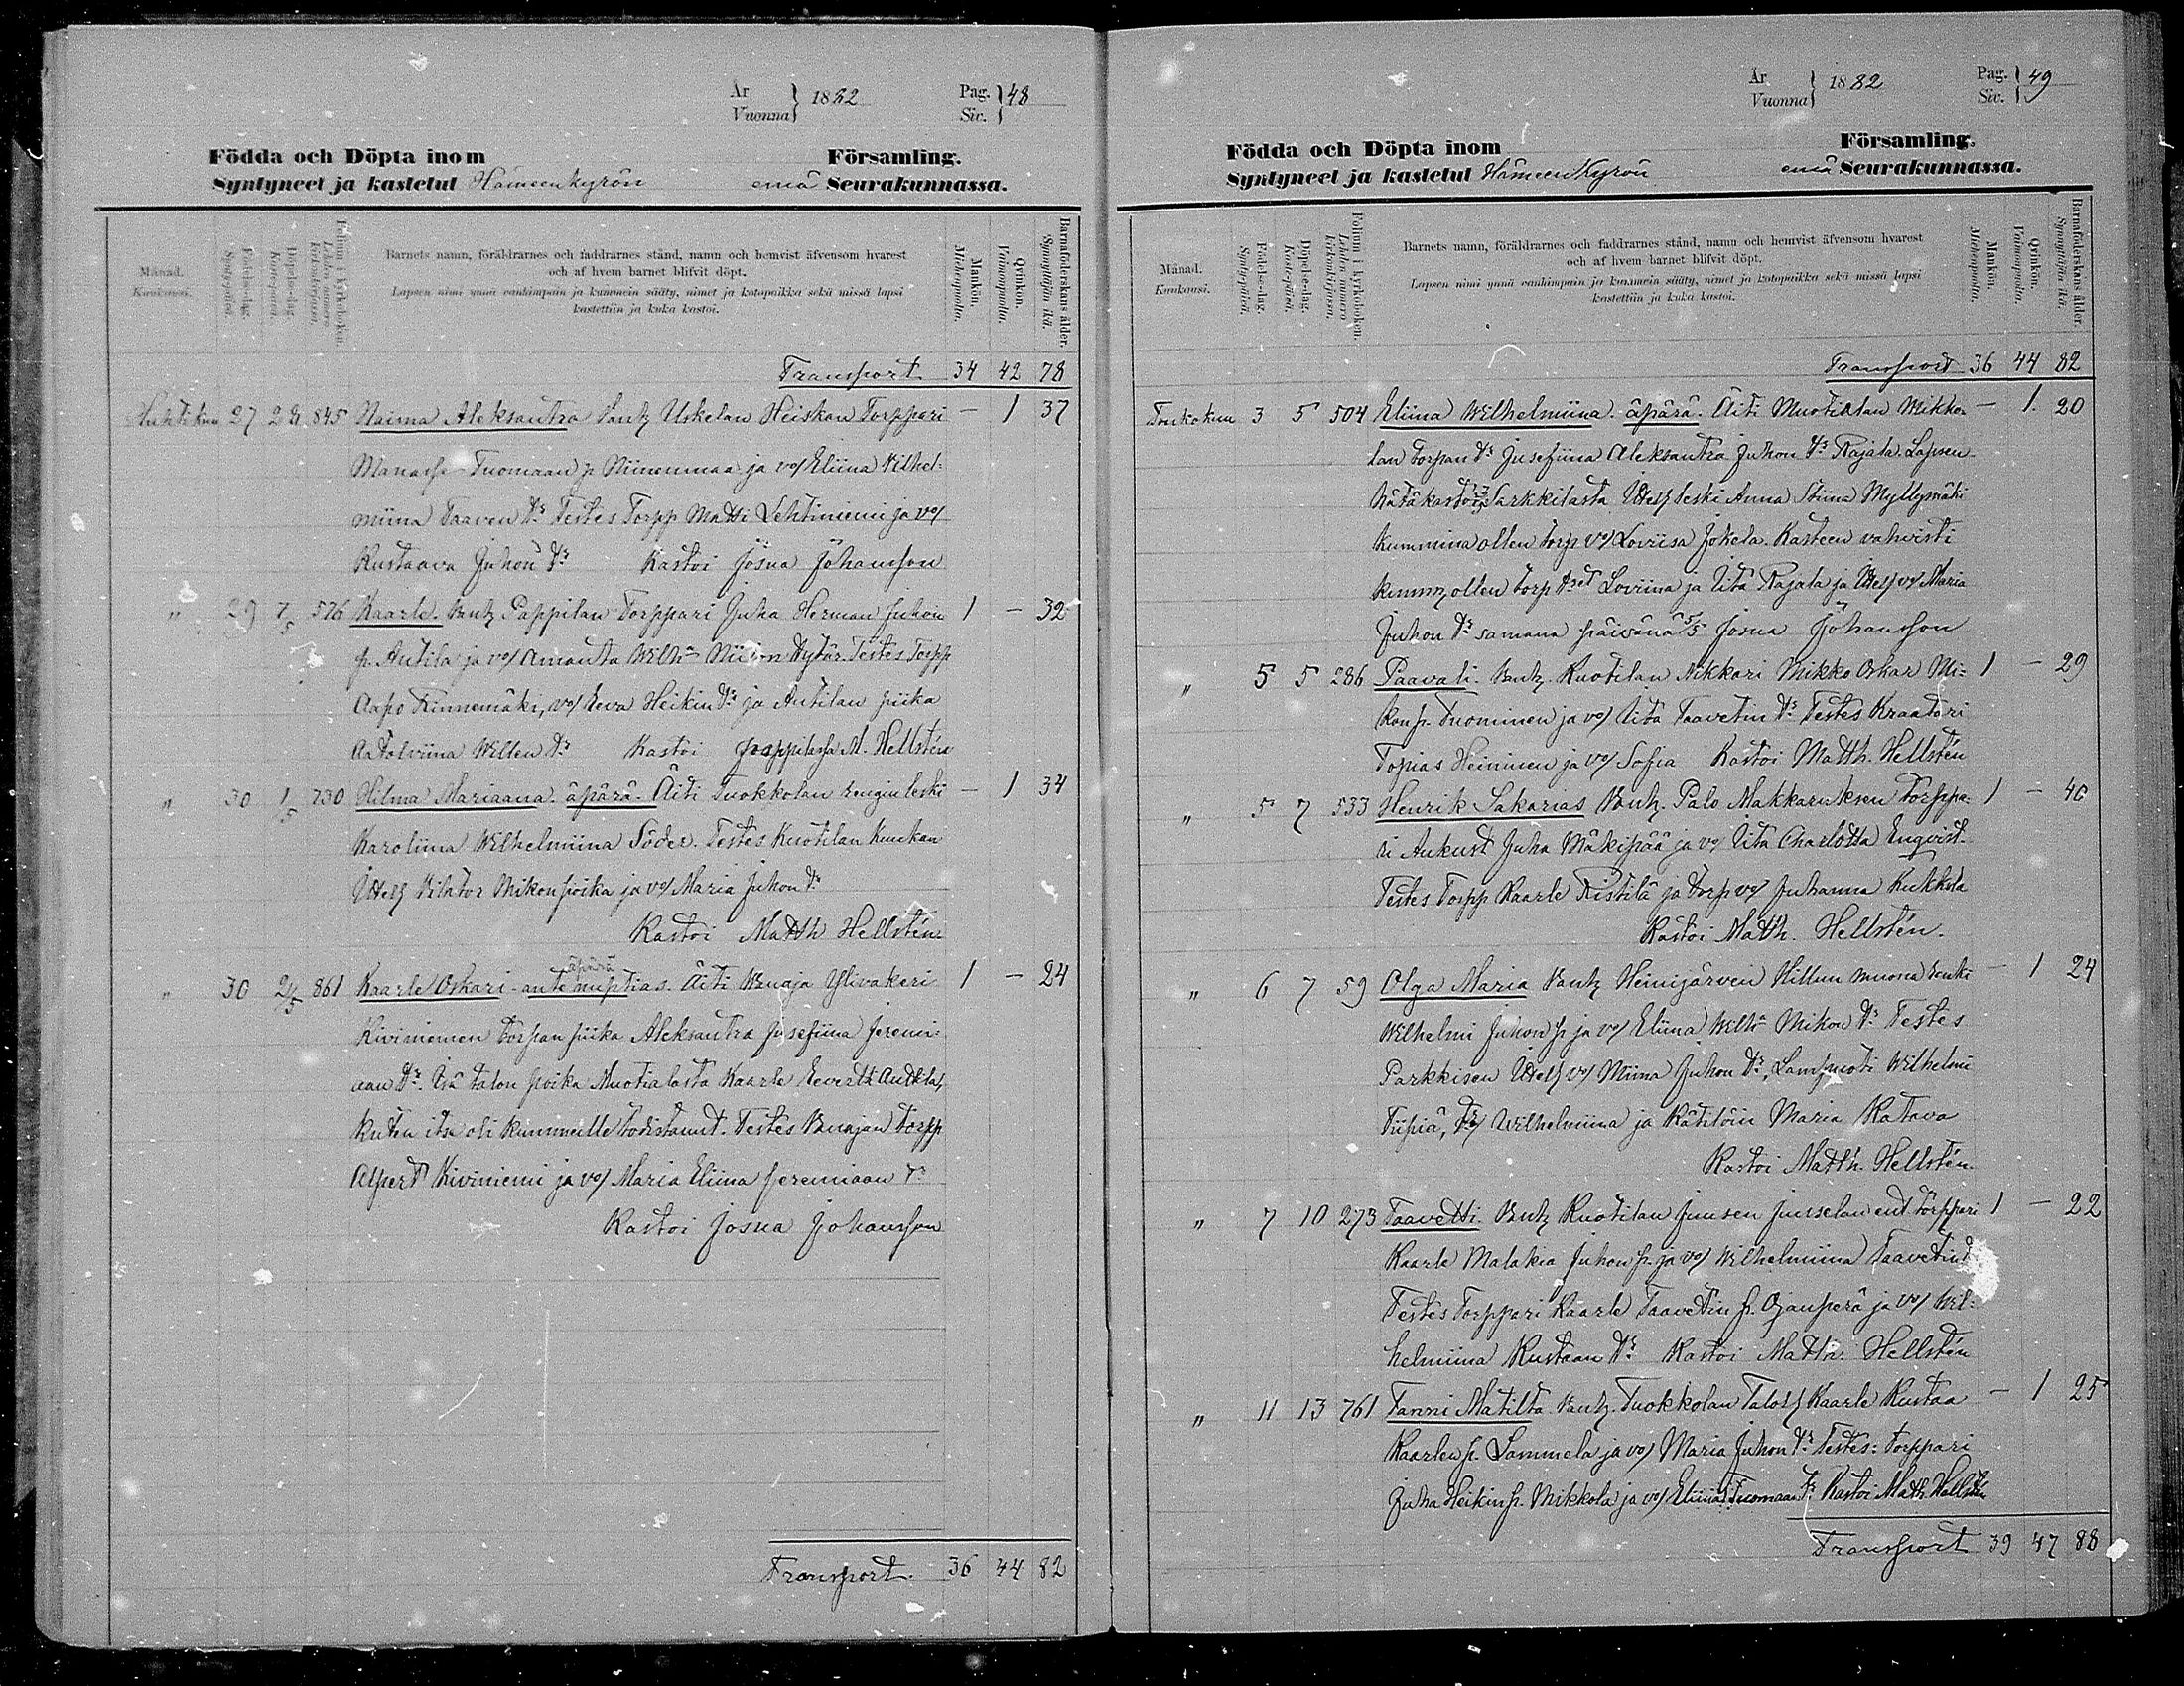 År
Vuonna } 1882
Pag.
Siv. } 48
Födda och Döpta inom Församling.
Syntyneet ja kastetut Hämeenkyrön emä Seurakunnassa.
Månad.
Kuukausi.
Födelse-dag.
Syntypäivä.
Döpelse-dag.
Kaste-päivä.
Folium i kyrkoboken.
Lehden numero kirkonkirjassa.
Barnets namn, föräldrarnes och faddrarnes stånd, namn och hemvist äfvensom hvarest
och af hvem barnet blifvit döpt.
Lapsen nimi ynnä vanhimpain ja kummein sääty, nimet ja kotopaikka sekä missä lapsi
kastettiin ja kuka kastoi.
Mankön.
Miehenpuolia.
Qvinkön.
Vaimonpuolia.
Barnaföderskans ålder.
Synnyttäjän ikä.
Transport 34 42 78
Huhtikuu 27 28 845 Naima Aleksantra Vanh Uskelan Heiskan Torppari — 1 37
Manasse Tuomaan p. Niinenmaa ja vo/ Eliina Vilhel-
miina Taaven tr Testes Torpp Matti Lehtiniemi ja vo/
Kustaava Juhon tr Kastoi Josua Johansson
" 29 7/5 576 Kaarle. Vanh Pappilan Torppari Juha Herman Juhon 1 — 32
p. Antila ja vo/ Amanta Wilhna Niilon tytär. Testes Torpp
Aapo Kinnemäki, vo/ Eeva Heikin tr ja Antilan piika
Aatolviina Willen tr Kastoi pappilassa M. Hellstén
" 30 1/5 730 Hilma Mariaana. äpärä. Äiti Tuokkolan rengin leski — 1 34
Karoliina Wilhelmiina Söder. Testes Kuotilan Kuukan
Itsell Wihtor Mikon poika ja vo/ Maria Juhon tr
Kastoi Matth Hellstén.
äpärä
" 30 24/5 861 Kaarle Oskari - ante nuptias. Äiti Wanaja Ylivakeri 1 — 24
Kiviniemen torpan piika Aleksantra Josefiina Jeremi-
aan tr. Isä talon poika Muotialasta Kaarle Eevertti Anttila,
kuten itse oli kummeille todistanut. Testes Wanajan torpp
Alpert Kiviniemi ja vo/ Maria Eliina Jeremiaan tr
Kastoi Josua Johansson
Transport. 36 44 82
År
Vuonna } 1882
Pag.
Siv. } 49
Födda och Döpta inom Församling.
Syntyneet ja kastetut Hämeenkyrön emä Seurakunnassa.
Månad.
Kuukausi.
Födelse-dag.
Syntypäivä.
Döpelse-dag.
Kaste-päivä.
Folium i kyrkoboken.
Lehden numero kirkonkirjassa.
Barnets namn, föräldrarnes och faddrarnes stånd, namn och hemvist äfvensom hvarest
och af hvem barnet blifvit döpt.
Lapsen nimi ynnä vanhimpain ja kummein sääty, nimet ja kotopaikka sekä missä lapsi
kastettiin ja kuka kastoi.
Mankön.
Miehenpuolia.
Qvinkön.
Vaimonpuolia.
Barnaföderskans ålder.
Synnyttäjän ikä.
Transport 36 44 82
Toukokuu 3 5 504 Eliina Wilhelmiina. äpärä. Äiti Muotialan Mikko- — 1. 20
lan torpan tr Jusefiina Aleksantra Juhon tr Rajala. Lapsen
hätäkastoi Sarkkilasta Itsell leski Anna Stiina Myllymäki
kummina ollen torp vo/ Loviisa Jokela. Kasteen vahvisti
kumm, ollen torp tret Loviina ja Iita Rajala ja Itsell vo/ Maria
Juhon tr samana päivänä 5/5 Josua Johansson
" 5 5 286 Paavali. Vanh. Kuotilan Nikkari Mikko Oskar Mi- 1 — 29
kon p. Tuominen ja vo/ Iita Taavetin tr Testes Kraatari
Topias Heininen ja vo/ Sofia Kastoi Matth. Hellstén
" 5 7 533 Henrik Sakarias Vanh. Palo Makkaruksen Torppa- 1 — 40
ri Aukust Juha Mäkipää ja vo/ Iita Charlotta Enqvist.
Testes Torpp Kaarle Ristilä ja torp vo/ Juhanna Kukkola
Kastoi Matth. Hellstén.
" 6 7 59 Olga Maria Vanh Heinijärvein Hillun muona renki — 1 24
Wilhelmi Juhon p ja vo/ Eliina Wilhna Mikon tr Testes
Parkkisen Itsell vo/ Miina Juhon tr, Lampuoti Wilhelmi
Tiipiä, vo/ Wilhelmiina ja Kätilöin Maria Katava
Kastoi Matth. Hellstén.
" 7 10 273 Taavetti. Vanh Kuotilan Juusen Juuselan ent Torppari 1 — 22
Kaarle Malakia Juhon p. ja vo/ Wilhelmiina Taavetin
Testes Torppari Kaarle Taavetin p. Ojanperä ja vo/ Wil-
helmiina Kustaan tr Kastoi Matth. Hellstén
" 11 13 761 Fanni Matilta Vanh. Tuokkolan Talolh Kaarle Kustaa — 1 25
Kaarlen p. Lammela ja vo/ Maria Juhon tr Testes: torppari
Juha Heikin p. Mikkola ja vo/ Eliina Tuomaan tr Kastoi Matth. Hellstén
Transport 39 47 88